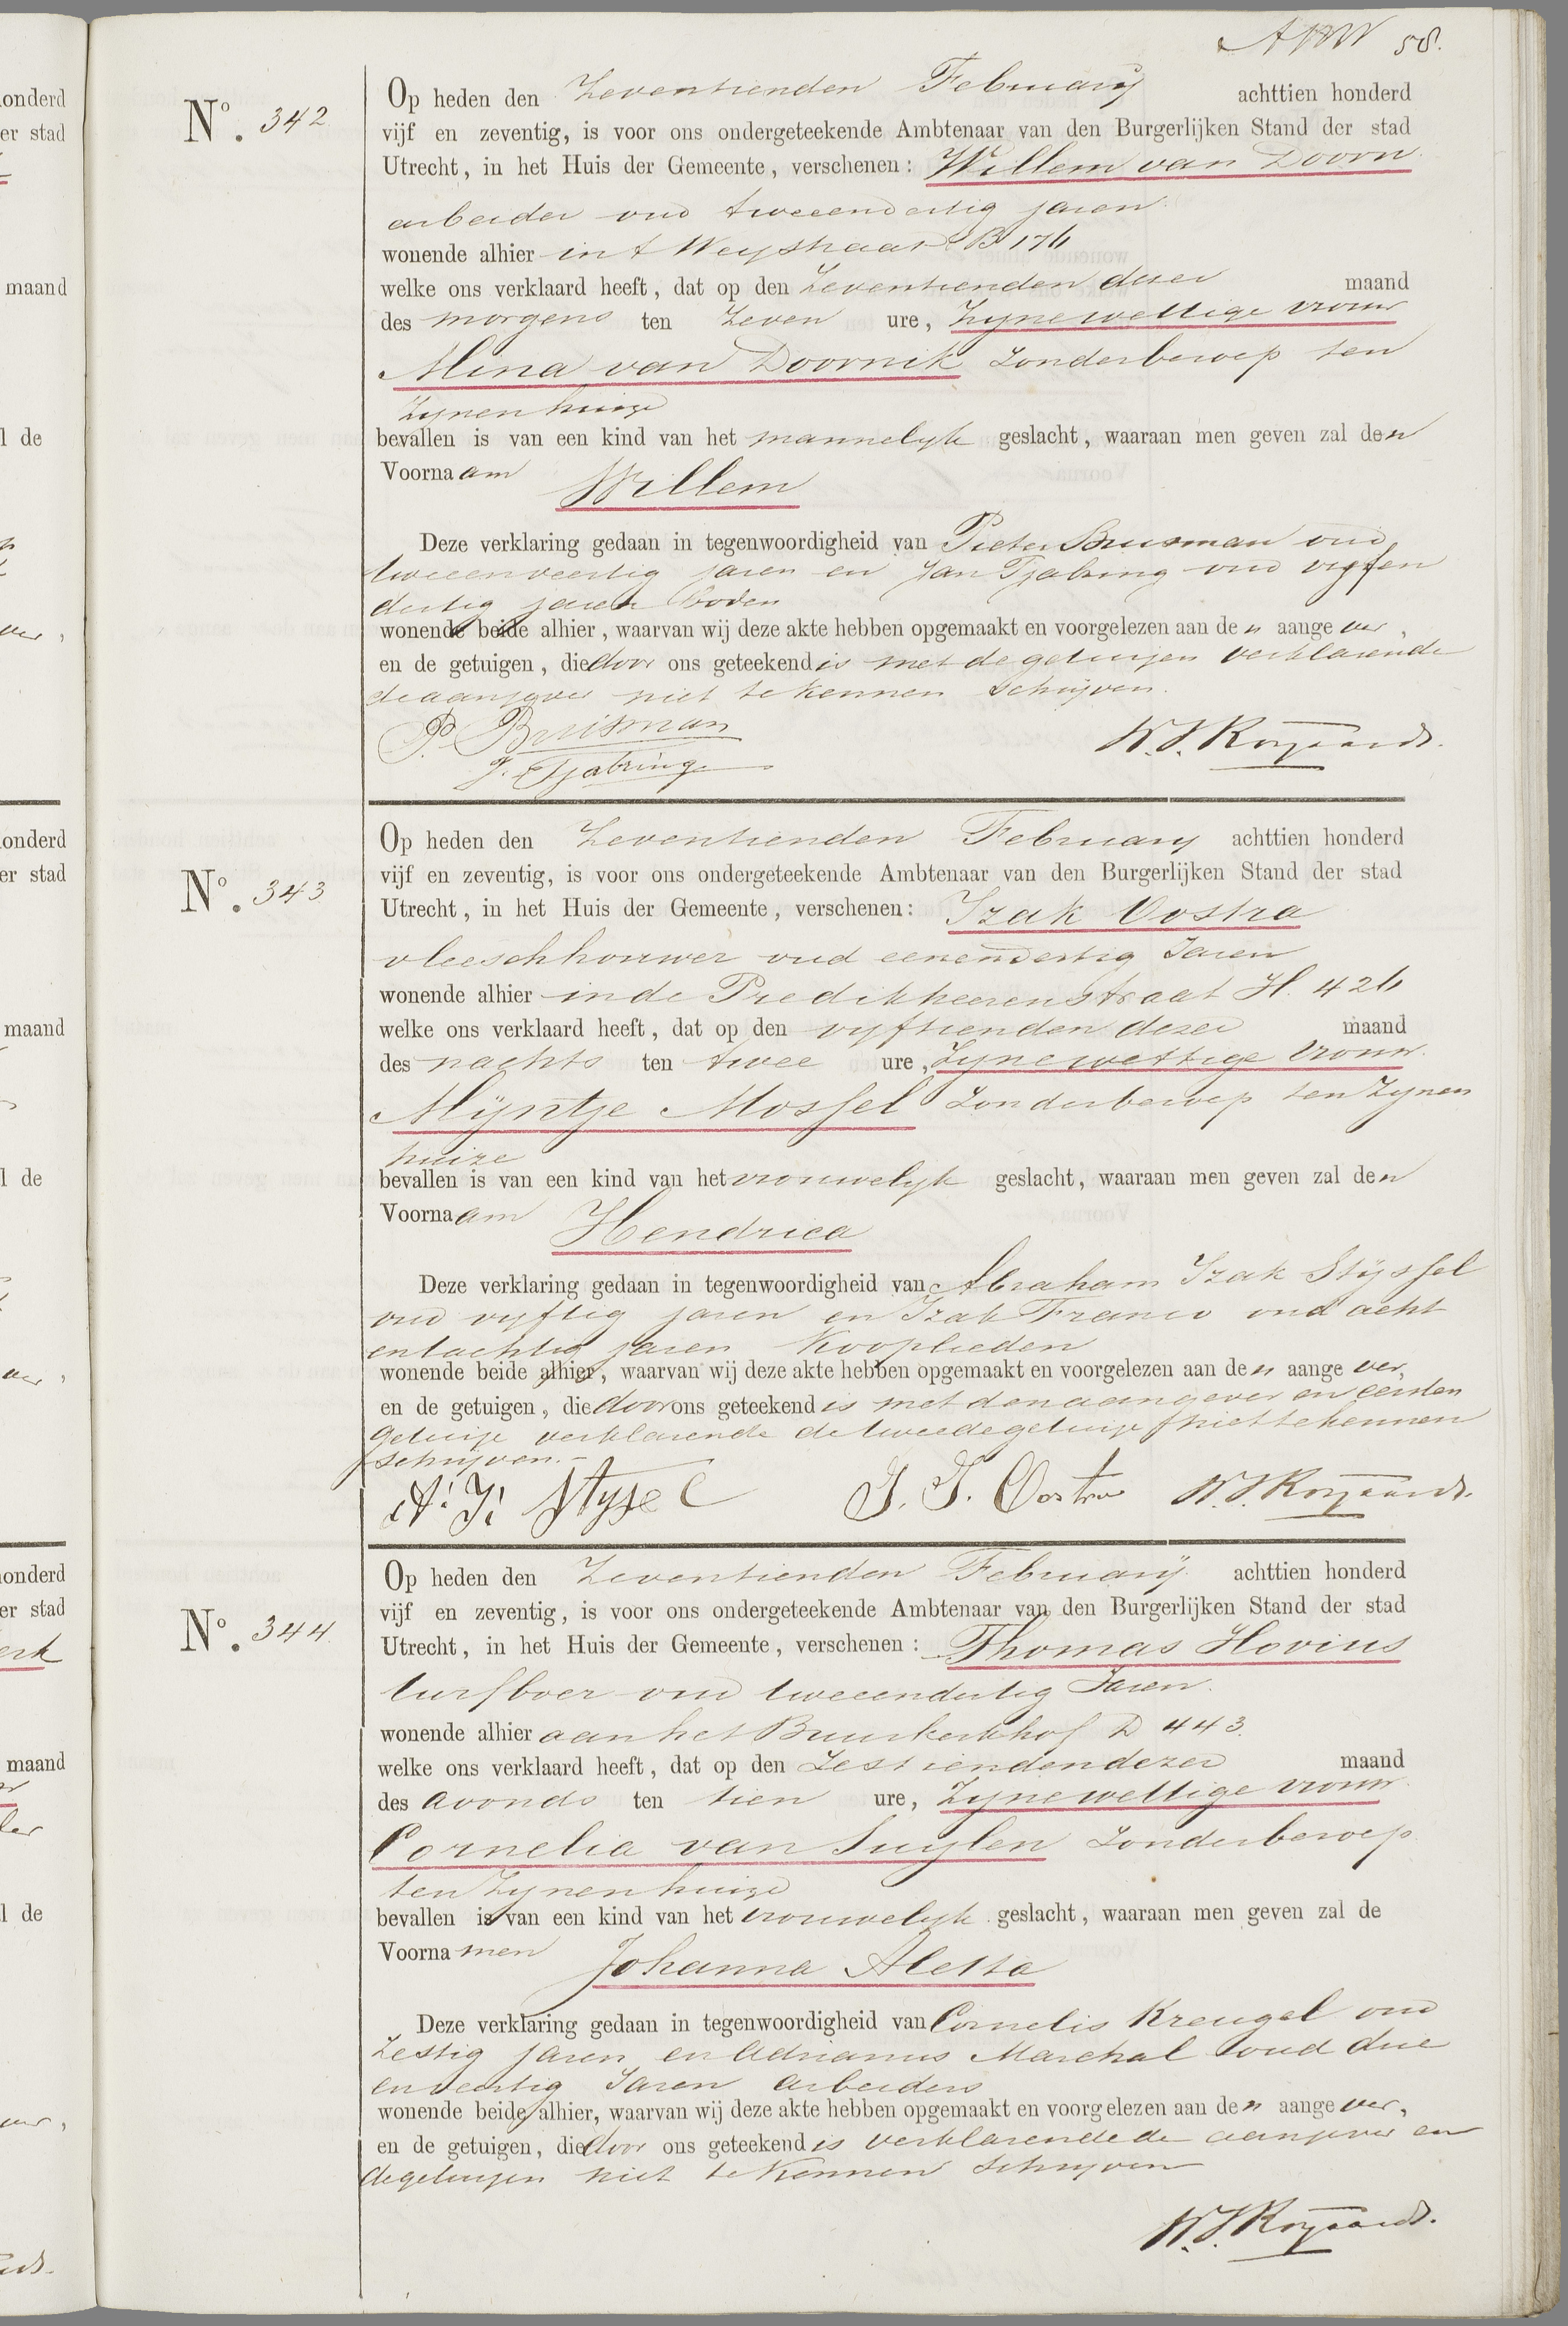 58.
No. 342
Op heden den Zeventienden February achttien honderd
vijf en zeventig, is voor ons ondergeteekende Ambtenaar van den Burgerlijken Stand der stad
Utrecht, in het Huis der Gemeente, verschenen: Willem van Doorn
arbeider oud tweeendertig jaren
wonende alhier in t Weystraat B 176
welke ons verklaard heeft, dat op den Zeventienden dezer maand
des morgens ten Zeven ure, Zyne wettige vrouw
Mina van Doornik Zonder beroep ten
Zynen huize
bevallen is van een kind van het mannelyk geslacht, waaraan men geven zal den
Voornaam Willem
Deze verklaring gedaan in tegenwoordigheid van Pieter Bruisman oud
tweeenveertig jaren en Jan Tjabring oud vyfen
dertig jaren boden
wonende beide alhier, waarvan wij deze akte hebben opgemaakt en voorgelezen aan den aangever,
en de getuigen, die door ons geteekend is met de getuigen verklarende
de aangever niet te kennen schryven.
P. Bruisman
J. Tjabring
W. J. Royaards.
No. 343
Op heden den Zeventienden February achttien honderd
vijf en zeventig, is voor ons ondergeteekende Ambtenaar van den Burgerlijken Stand der stad
Utrecht, in het Huis der Gemeente, verschenen: Izak Oostra
vleeschhouwer oud eenendertig Jaren
wonende alhier in de Predikheerenstraat H. 426
welke ons verklaard heeft, dat op den vyftienden dezer maand
des nachts ten twee ure, Zyne wettige Vrouw
Mijntje Mossel Zonder beroep ten Zynen
huize
bevallen is van een kind van het vrouwelyk geslacht, waaraan men geven zal den
Voornaam Hendrica
Deze verklaring gedaan in tegenwoordigheid van Abraham Izak Stijssel
oud vyftig jaren en Izak Franco oud acht
entachtig jaren Kooplieden
wonende beide alhier, waarvan wij deze akte hebben opgemaakt en voorgelezen aan den aangever,
en de getuigen, die door ons geteekend is met den aangever en eersten
getuige verklarende de tweede getuige niet te kennen
schryven.-
A. I. Stysel J. J. Oostra W. J. Royaards.
No. 344
Op heden den Zeventienden February achttien honderd
vijf en zeventig, is voor ons ondergeteekende Ambtenaar van den Burgerlijken Stand der stad
Utrecht, in het Huis der Gemeente, verschenen: Thomas Hovius
turfboer oud tweeendertig Jaren.
wonende alhier aan het Buurkerkhof D 443.
welke ons verklaard heeft, dat op den Zestienden dezer maand
des avonds ten tien ure, Zyne wettige vrouw
Cornelia van Suylen Zonder beroep
ten Zynen huize
bevallen is van een kind van het vrouwelyk geslacht, waaraan men geven zal de
Voornamen Johanna Aletta
Deze verklaring gedaan in tegenwoordigheid van Cornelis Kreugel oud
Zestig jaren en Adrianus Marchal oud drie
enveertig Jaren arbeiders
wonende beide alhier, waarvan wij deze akte hebben opgemaakt en voorgelezen aan den aangever,
en de getuigen, die door ons geteekend is verklarende de aangever en
de getuigen niet te kennen schryven
W. J. Royaards.